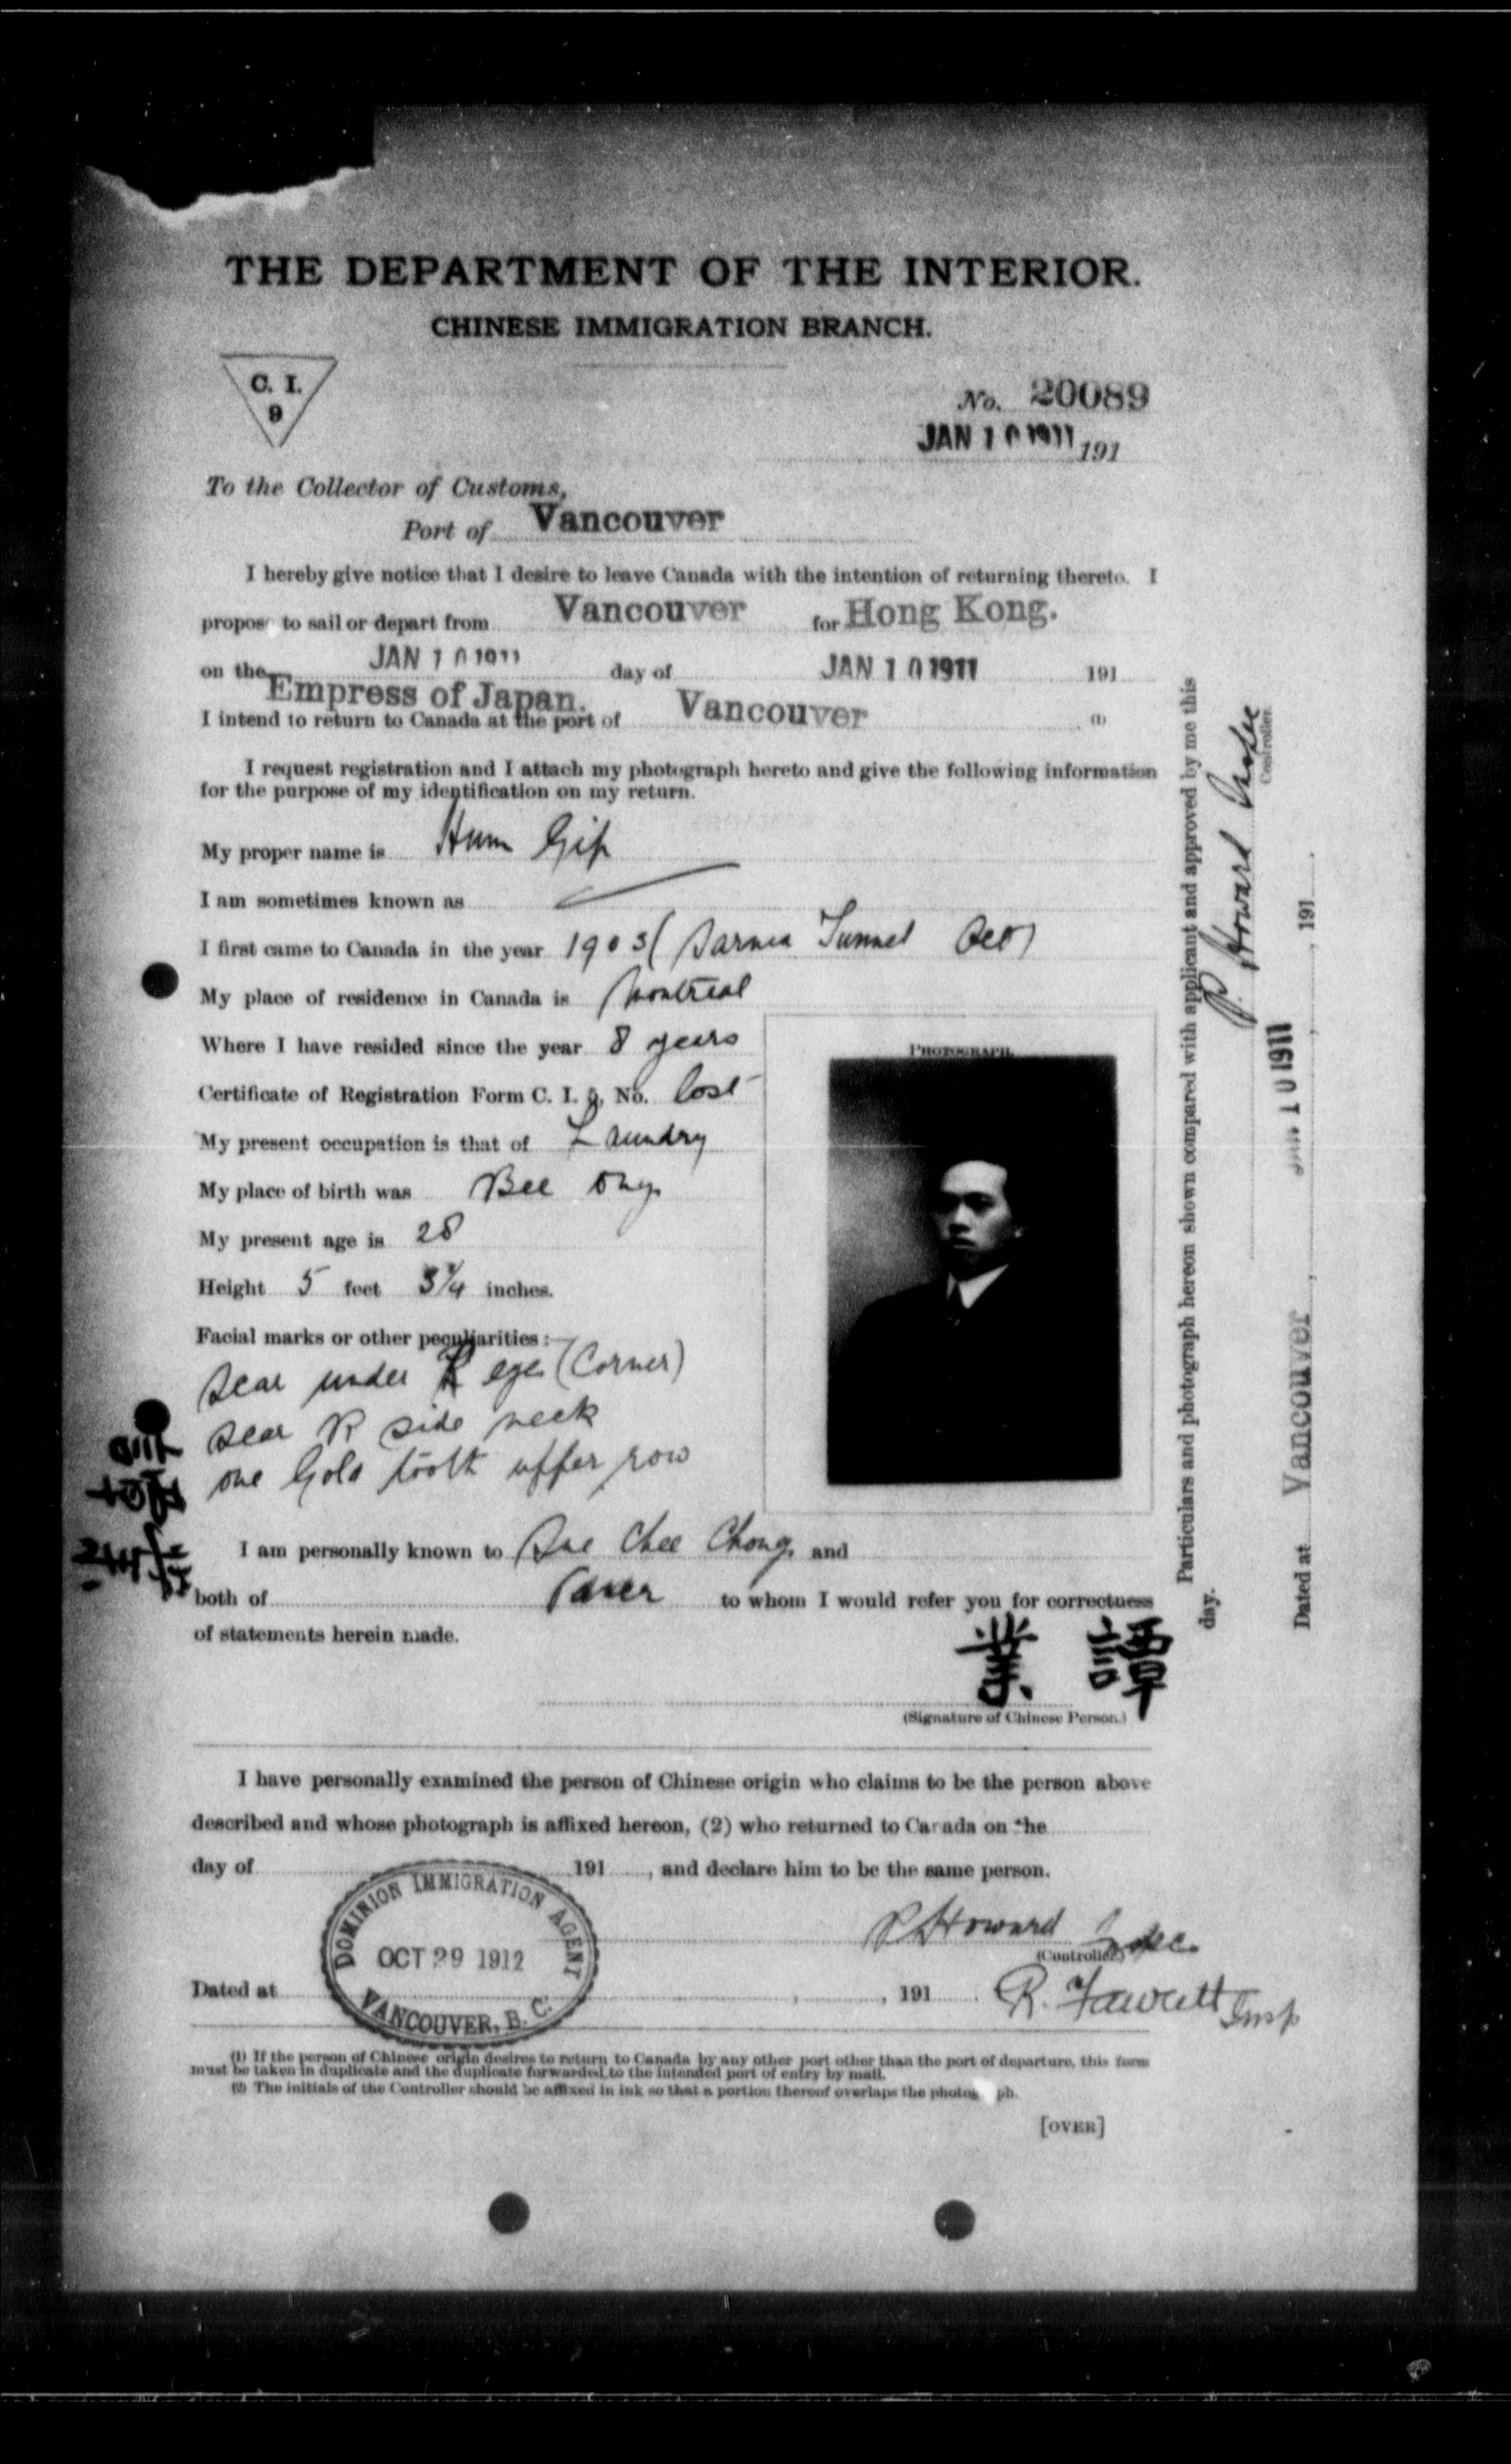 THE DEPARTMENT OF THE INTERIOR.
CHINESE IMMIGRATION BRANCH.
C. I.
9
No. 20089
JAN 10 1911 191
To the Collector of Customs,
Port of Vancouver
I hereby give notice that I desire to leave Canada with the intention of returning thereto. I
propose to sail or depart from Vancouver for Hong Kong.
on the JAN 10 1911 day of JAN 10 1911 191
Empress of Japan.
I intend to return to Canada at the port of Vancouver (1)
I request registration and I attach my photograph hereto and give the following information
for the purpose of my identification on my return.
My proper name is Hum Gip
I am sometimes known as
I first came to Canada in the year 1903 (Sarnia Tunnel Oct)
My place of residence in Canada is Montreal
Where I have resided since the year 8 years
Certificate of Registration Form C. I. 5, No. lost
My present occupation is that of Laundry
My place of birth was Bee Ong
My present age is 28
Height 5 feet 3¼ inches.
Facial marks or other peculiarities :—
Scar under R eye (Corner)
Scar R side neck
one Gold tooth upper row
PHOTOGRAPH.
I am personally known to Sue Chee Chong and
both of Vancr to whom I would refer you for correctness
of statements herein made.
業 譚
(Signature of Chinese Person.)
I have personally examined the person of Chinese origin who claims to be the person above
described and whose photograph is affixed hereon, (2) who returned to Canada on the
day of 191 , and declare him to be the same person.
DOMINION IMMIGRATION AGENT
OCT 29 1912
VANCOUVER, B. C.
P Howard Insp.
(Controller)
Dated at , , 191
R. Fawcett Insp
(1) If the person of Chinese origin desires to return to Canada by any other port other than the port of departure, this form
must be taken in duplicate and the duplicate forwarded to the intended port of entry by mail.
(2) The initials of the Controller should be affixed in ink so that a portion thereof overlaps the photog ph.
[OVER]
Particulars and photograph hereon shown compared with applicant and approved by me this
day.
P. Howard
Controller.
Dated at Vancouver , JAN 10 1911 , 191